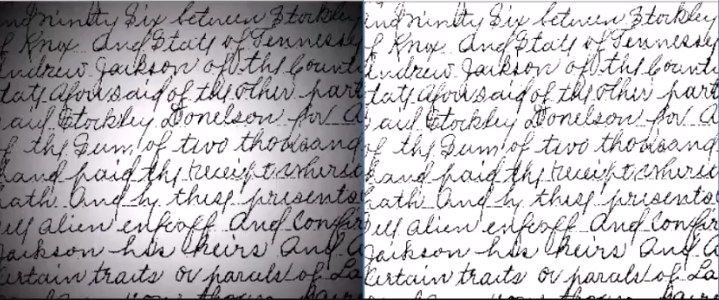 and ninty Six between Stockley
of Knox And State of Tennessy
Andrew Jackson of the Count
tate aforesaid of the other part
aid Stockley Donelson for
of the Sum of two thousand
hand paid the receipt
hath And by these presents
ell alien enfeoff And Confir
Jackson his heirs And
Certain traits or parals of La
and ninty Six between Stockley
of Knox And State of Tennessy
Andrew Jackson of the Count
tate aforesaid of the other part
aid Stockley Donelson for
of the Sum of two thousand
hand paid the receipt
hath And by these presents
ell alien enfeoff And Confir
Jackson his heirs And
Certain traits or parals of La